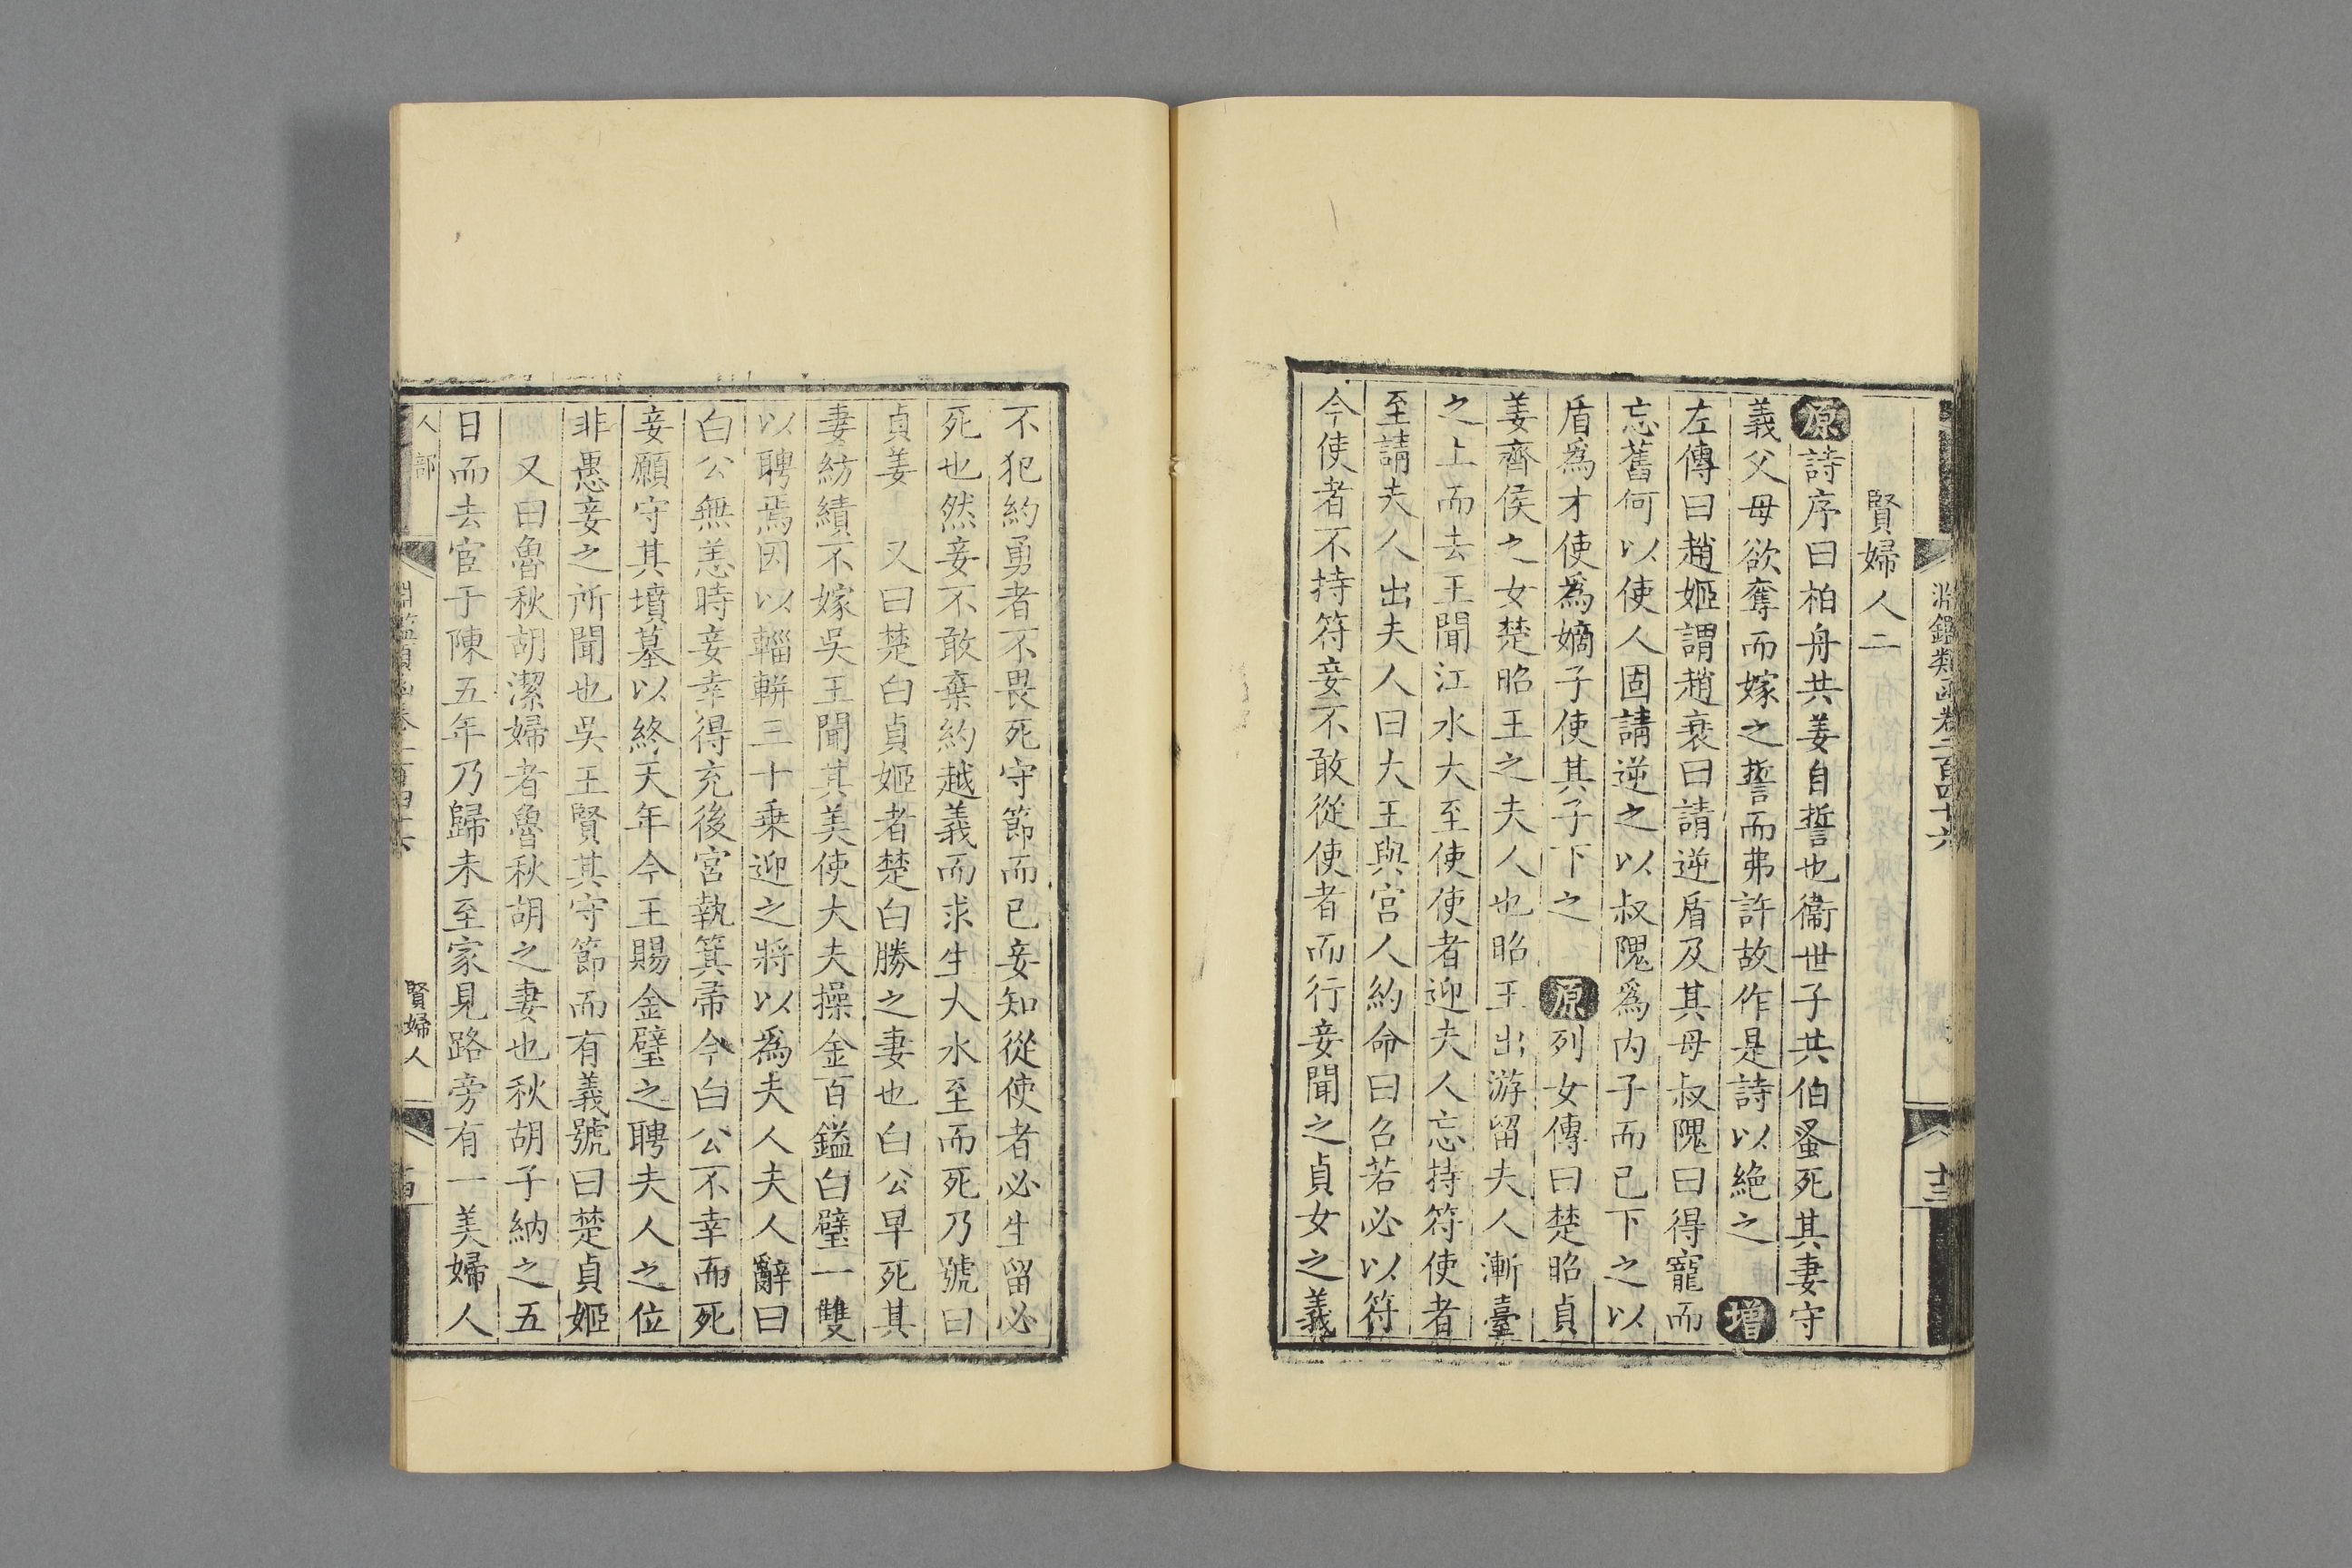 淵鑑類函卷二百四十六
十三
賢婦人二
原詩序曰柏舟共姜自誓也衞世子共伯蚤死其妻守
義父母欲奪而嫁之誓而弗許故作是詩以絶之 增
左傳曰趙姬謂趙衰曰請逆盾及其母叔隗曰得寵而
忘舊何以使人固請逆之以叔隗爲内子而已下之以
盾爲才使爲嫡子使其子下之 原列女傳曰楚昭貞
姜齊侯之女楚昭王之夫人也昭王出游留夫人漸臺
之上而去王聞江水大至使使者迎夫人忘持符使者
至請夫人出夫人曰大王與宫人約命曰召若必以符
今使者不持符妾不敢從使者而行妾聞之貞女之義
不犯約勇者不畏死守節而已妾知從使者必生留必
死也然妾不敢棄約越義而求生大水至而死乃號曰
貞姜 又曰楚白貞姬者楚白勝之妻也白公早死其
妻紡績不嫁吳王聞其美使大夫操金百鎰白璧一雙
以聘焉因以輜軿三十乗迎之將以爲夫人夫人辭曰
白公無恙時妾幸得充後宫執箕帚今白公不幸而死
妾願守其墳墓以終天年今王賜金璧之聘夫人之位
非愚妾之所聞也吳王賢其守節而有義號曰楚貞姬
又曰魯秋胡潔婦者魯秋胡之妻也秋胡子納之五
日而去宦于陳五年乃歸未至家見路旁有一美婦人
人部
賢婦人